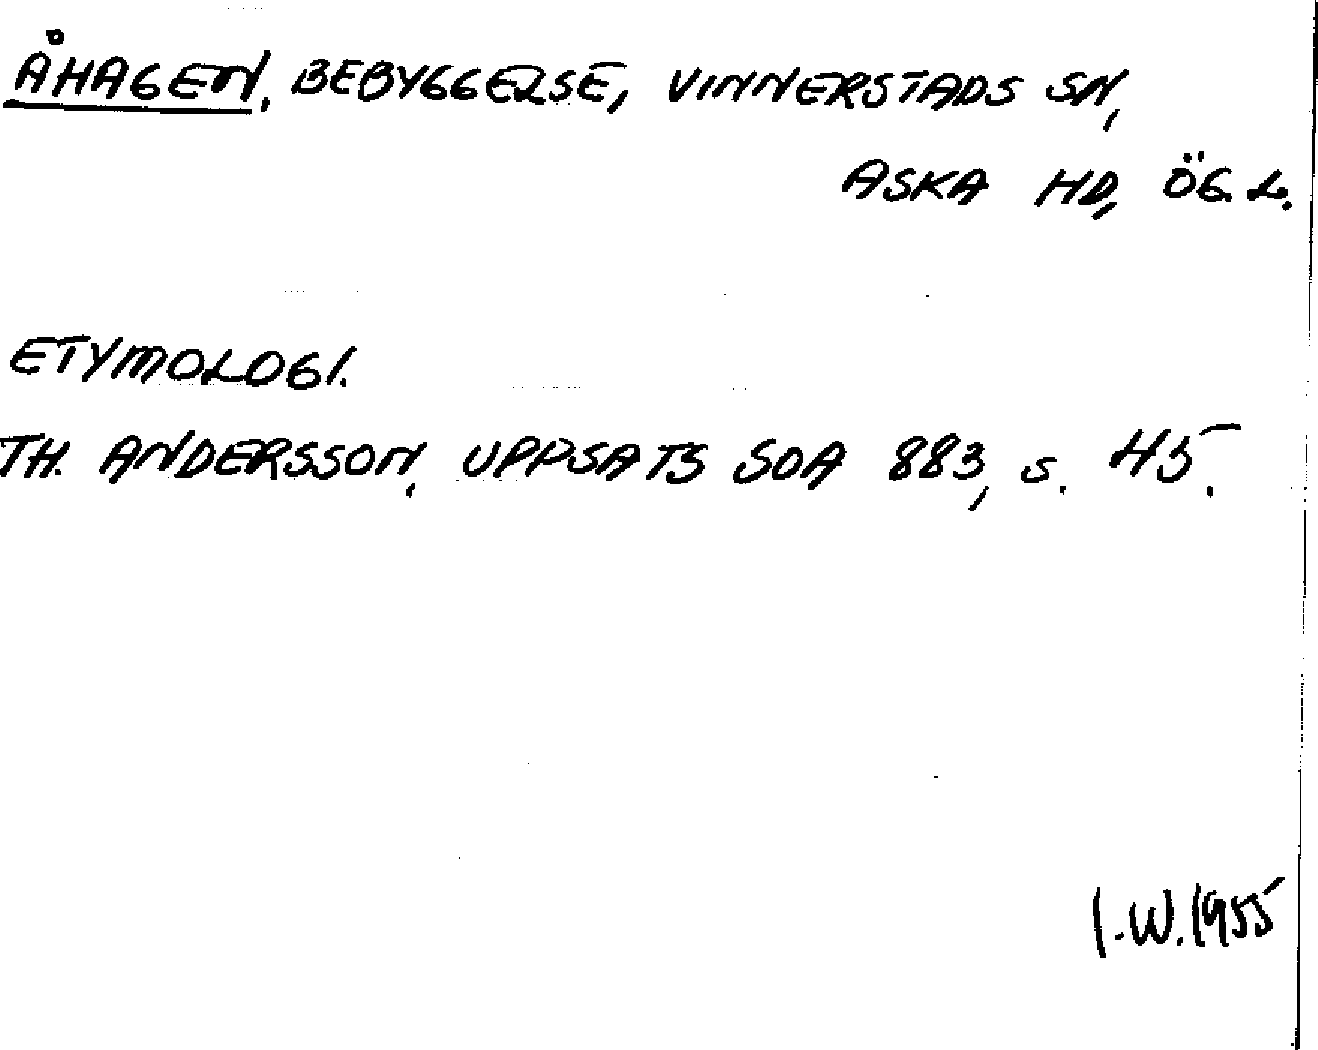 ÅHAGEN, BEBYGGELSE, VINNERSTADS SN,
ASKA HD, ÖG. L.
ETYMOLOGI.
TH. ANDERSSON, UPPSATS SOA 883, s. 45.
I.W. 1955